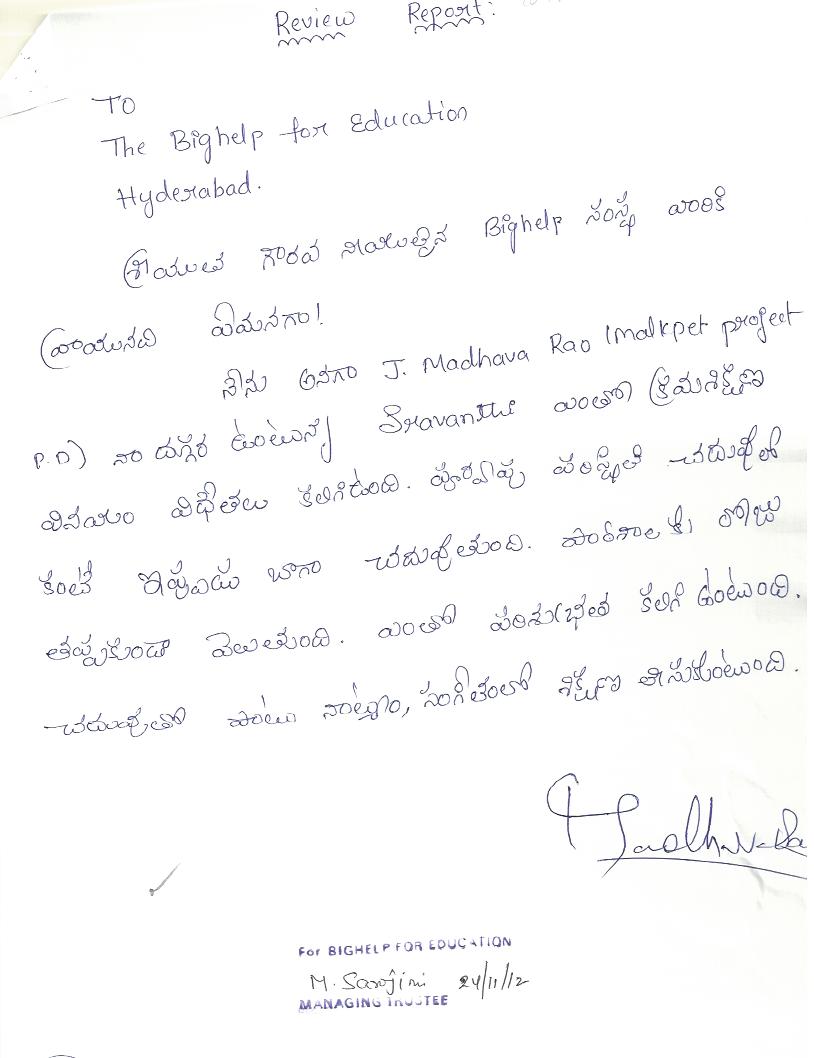 Review Report:
To
The Bighelp for Education
Hyderabad.
శ్రీయుత గౌరవ నీయులైన Bighelp సంస్థ వారికి
వ్రాయునది ఏమనగా!
నేను అనగా J. Madhava Rao (malkpet project
P.D) నా దగ్గర ఉంటున్న Sravanthi ఎంతో క్రమశిక్షణ
వినయం విధేతలు కలిగిఉంది. పూర్వపు పరిస్థితి చదువుల
కంటే ఇప్పుడు బాగా చదువుతుంది. పాఠశాలకు రోజు
తప్పకుండా వెలుతుంది. ఎంతో పరిశుభ్రత కలిగి ఉంటుంది.
చదువుతో పాటు నాట్యం, సంగీతంలో శిక్షణ తీసుకుంటుంది.
For BIGHELP FOR EDUCATION
M. Sarojini 24/11/12
MANAGING TRUSTEE